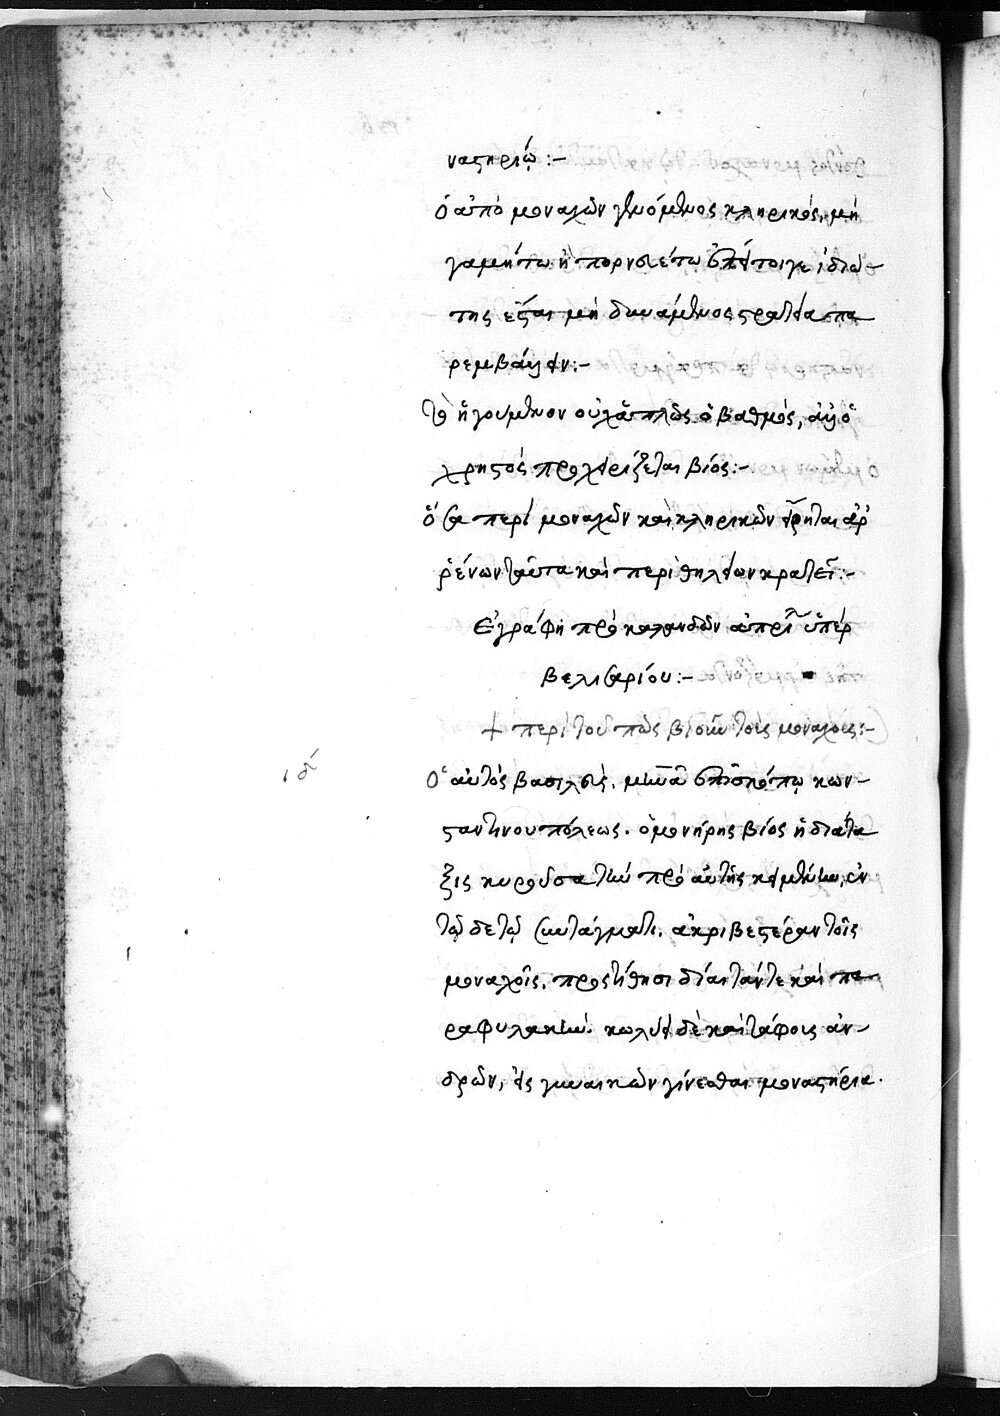 ναστηρίῳ :-
ὁ ἀπὸ μοναχῶν γενόμενος κληρικὸς, μὴ
γαμήτω ἢ πορνευέτω ἐπεί τοιγε ἰδιώ-
της ἔσται μὴ δυνάμενος στρατεία πα
ρεμβάλλειν:-
τὸν ἡγούμενον οὐχ ἁπλῶς ὁ βαθμὸς, ἀλλ' ὁ
χρηστὸς προχειρίζεται βίος:-
ὅσα περὶ μοναχῶν καὶ κληρικῶν εἴρηται ἀρ
ρένων ταῦτα καὶ περὶ θηλειῶν κρατεῖ:-
Ἐγράφη πρὸ καλανδῶν ἀπρι ὑπὲρ
βελισαρίου:-
+ περὶ τοῦ πῶς βιοῦν τοὺς μοναχούς:-
ιδ
Ὁ αὐτὸς βασιλεὺς. μηνᾶ ἐπισκόπῳ κων-
σταντινουπόλεως. ὁ μονήρης βίος ἡ διάτα
ξις κυροῦσα τὴν πρὸ αὐτῆς κειμένην, ἐν
τῷδε τῷ συντάγματι. ἀκριβεστέραν τοῖς
μοναχοῖς. προστίθησι δίαιτάν τε καὶ πα
ραφυλακὴν. κωλύει δὲ καὶ τάφοις ἀν-
δρῶν, εἰς γυναικῶν γίνεσθαι μοναστήρια.